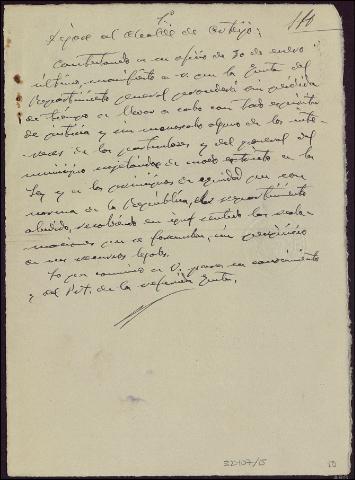 Dígase al Alcalde de
Contestando a su oficio de 30 de enero
último, manifiesto a V. que la Junta del
Repartimiento general procederá sin pérdida
de tiempo a llevar a cabo con todo espíritu
de justicia y sin menoscabo alguno de los inte-
reses de los particulares y del general del
municipio sujetándose de modo estricto a la
Ley y a los principios de equidad que son
norma de la República, el repartimiento
aludido, resolviendo en igual sentido las recla-
maciones que se formulen, sin perjuicio
de sus recursos legales.
Lo que comunico a V. para su conocimiento
y del Pte. de la referida Junta.
32107/15